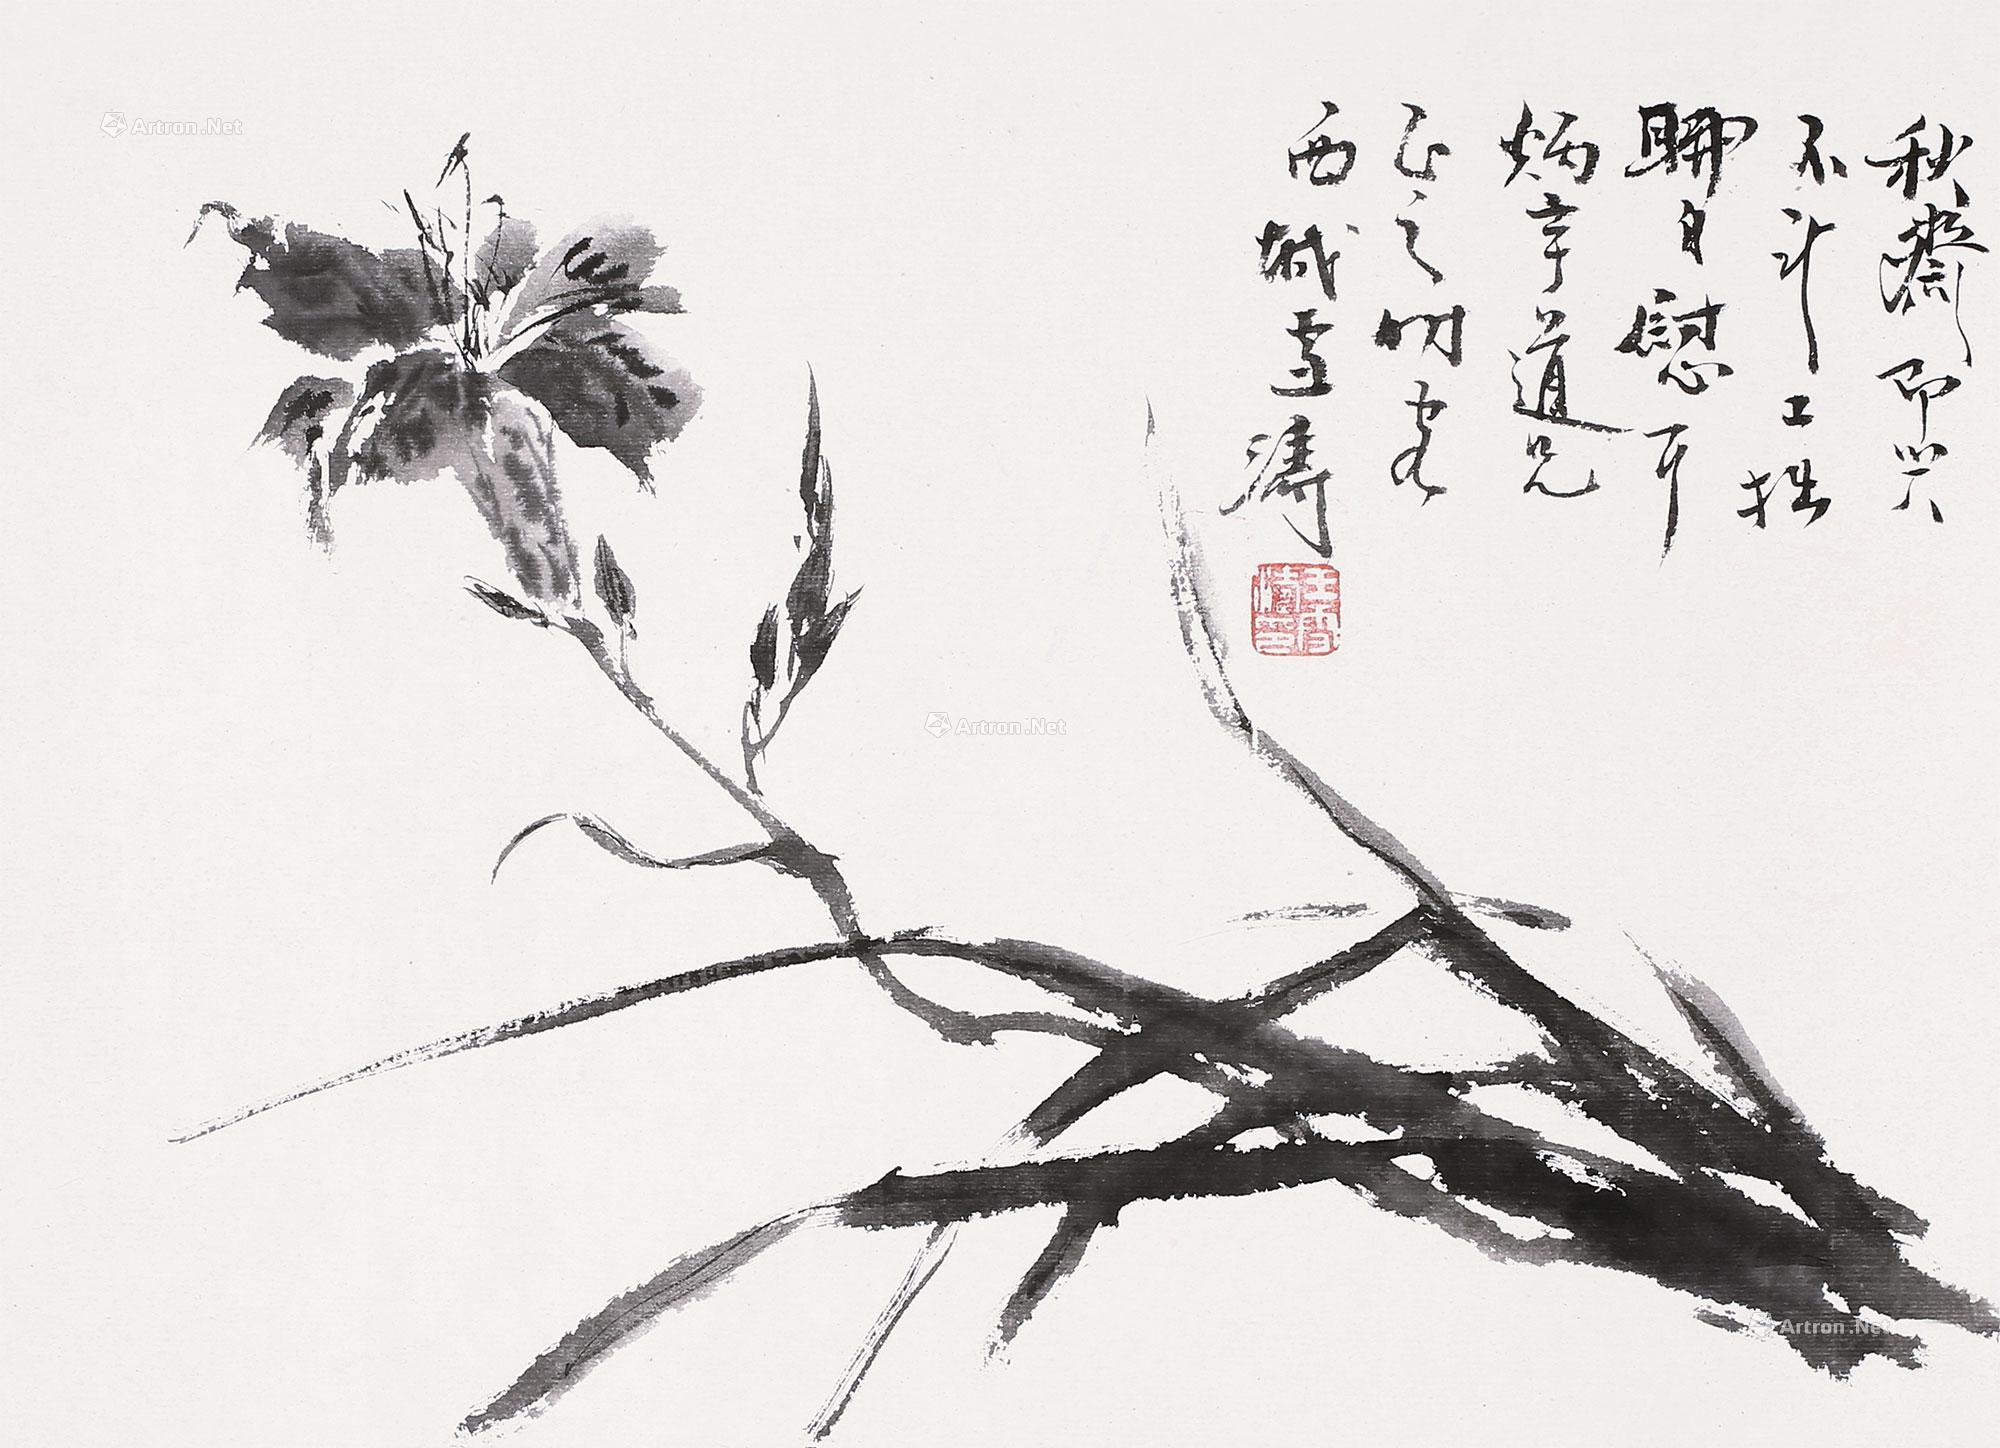 秋斋即兴
不计工拙
聊自慰耳
炳章道兄
正之明宏
西城雪涛
王雪涛印
Artron.Net
Artron.Net
Artron.Net